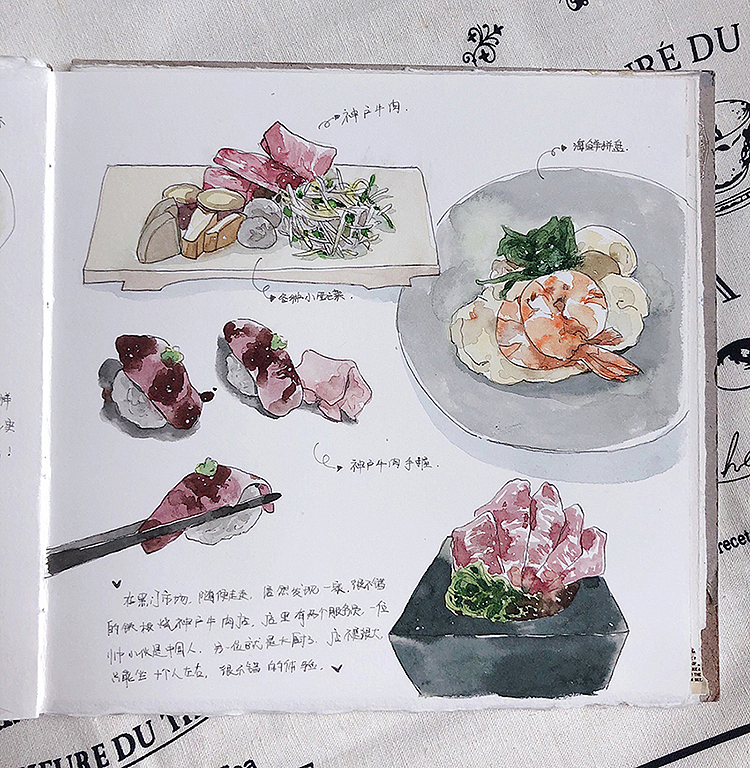 神户牛肉.
海鲜拼盘.
小配菜.
神户牛肉手握.
在黑门市场, 随便走走, 居然发现一家, 很不错
的铁板烧神户牛肉店, 店里有两个服务员, 一位
帅小伙是中国人, 另一位就是大厨了, 店不是很大
只能坐十个人左右, 很不错的体验.
!
IRÉ DU
IEURE DU T
he
recet